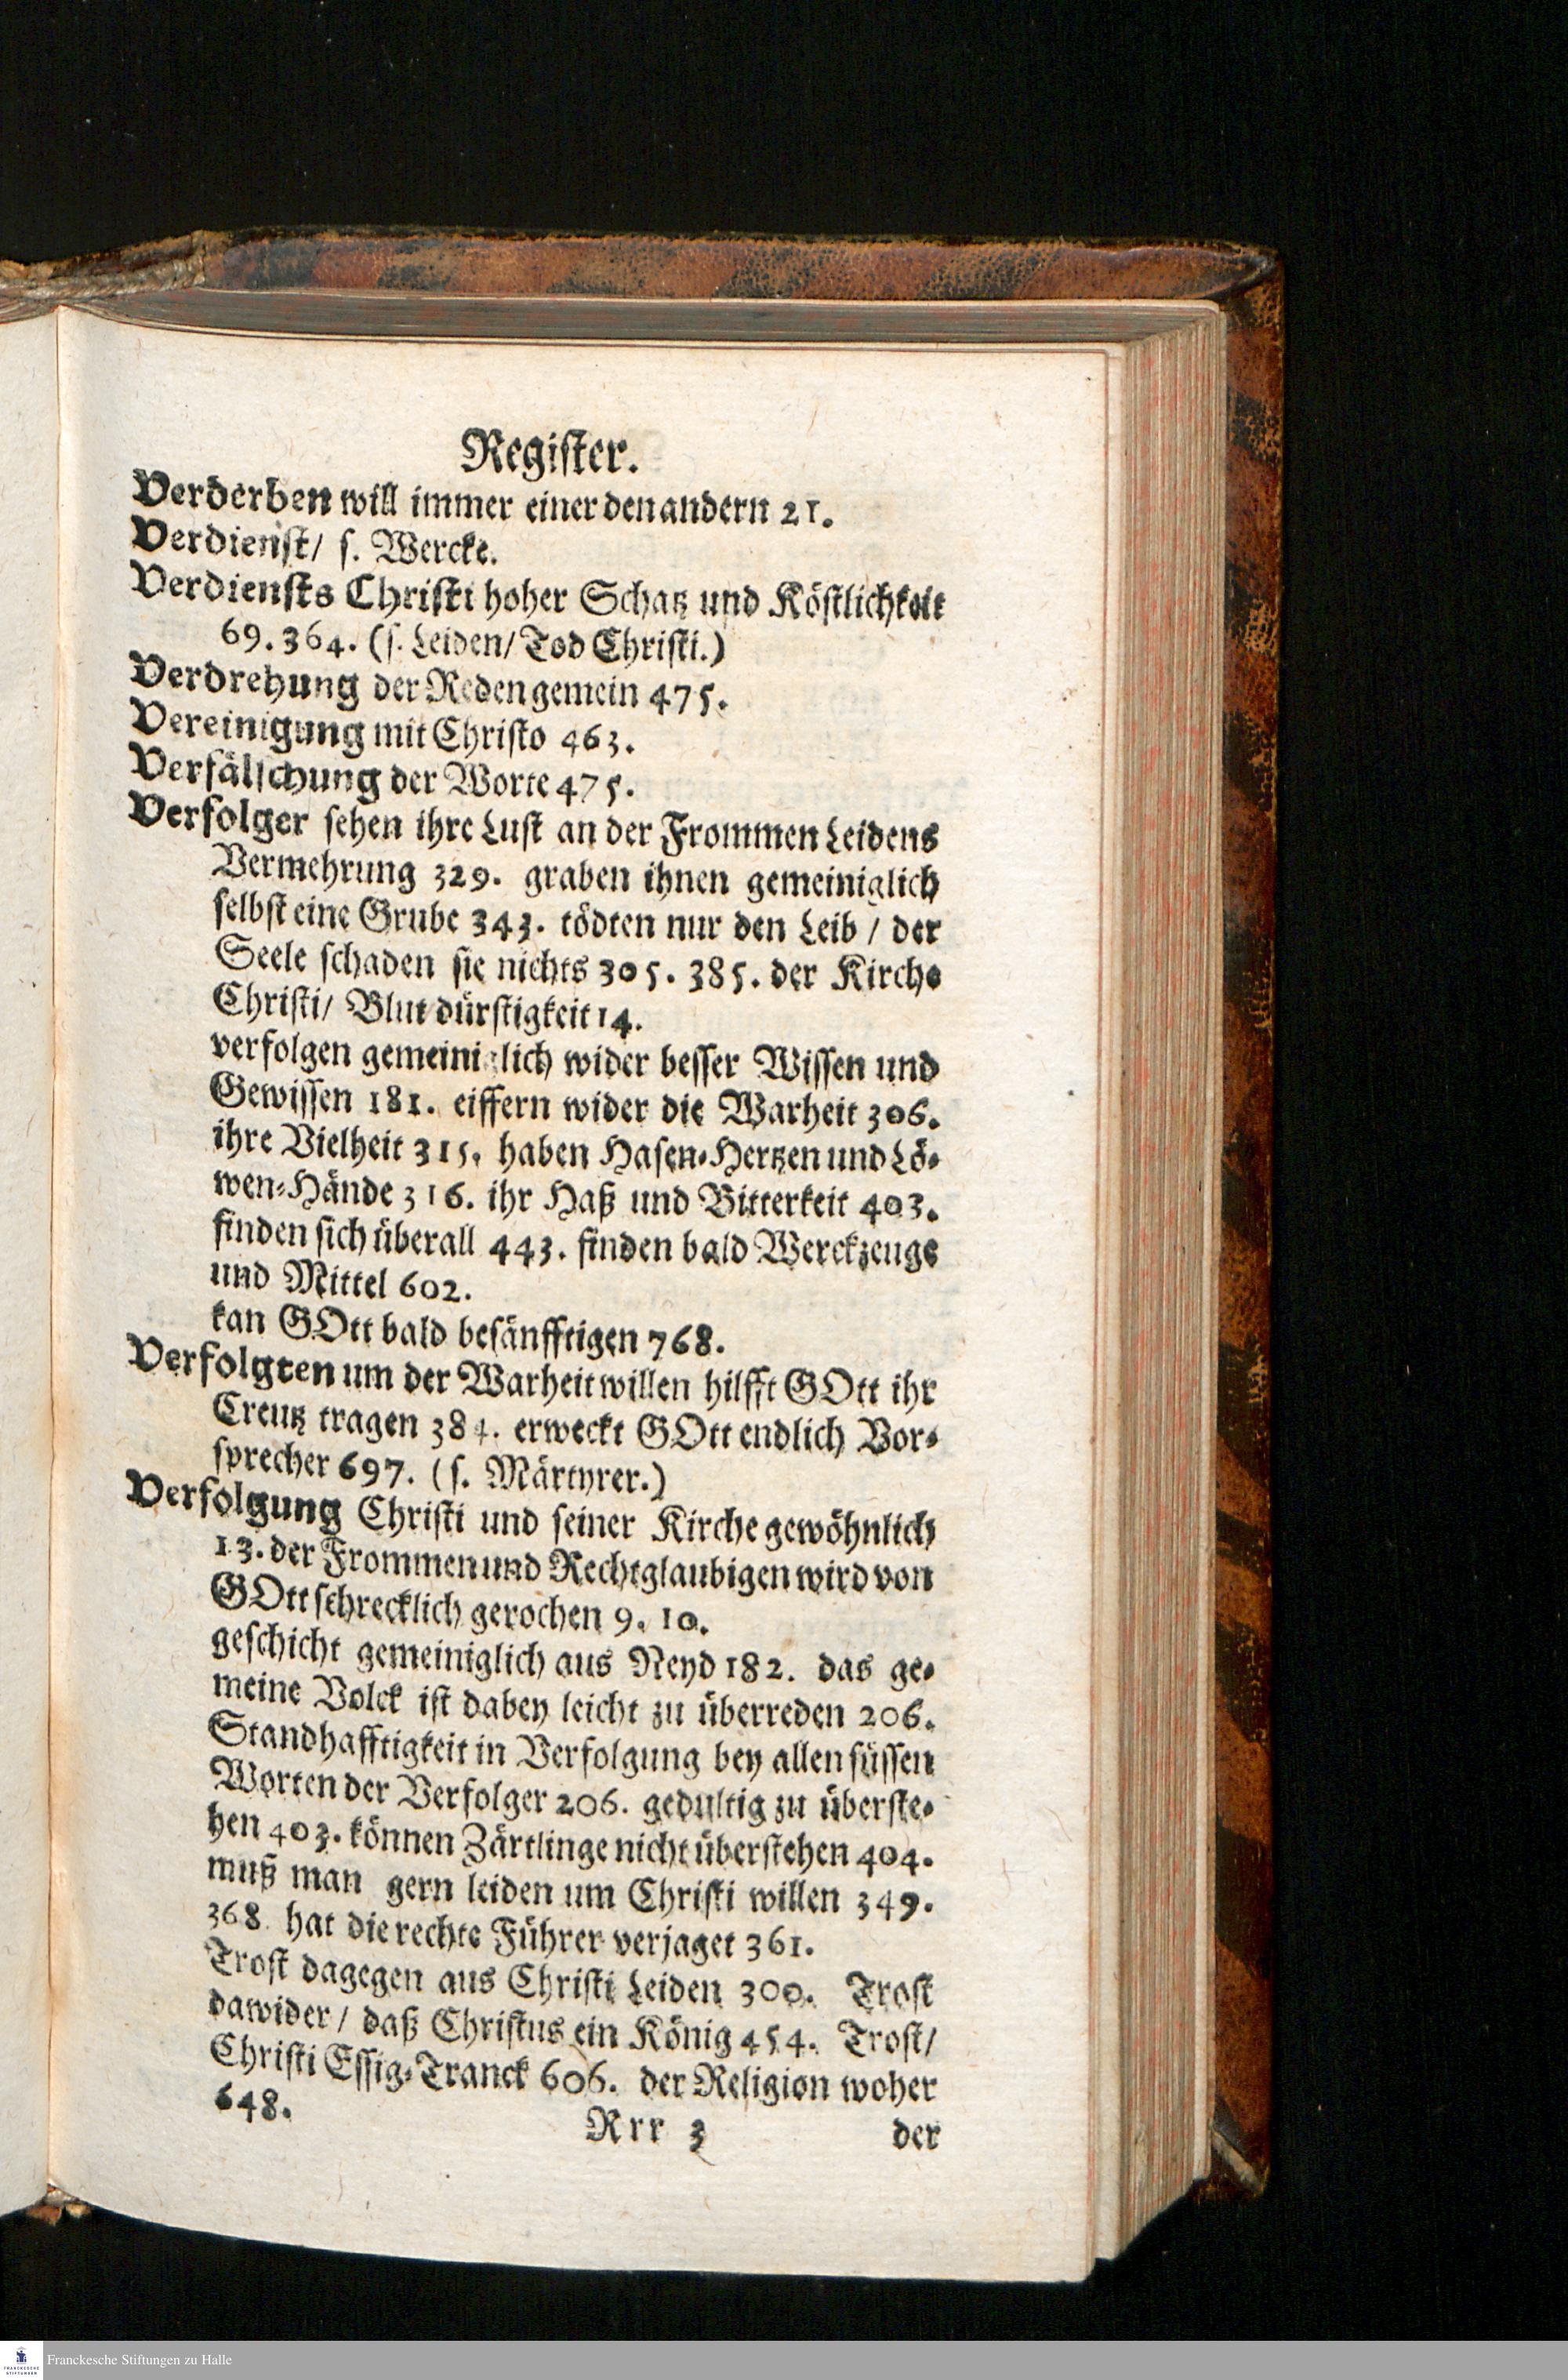 Register.
Verderben will immer einer den andern 21.
Verdienst/ s. Wercke.
Verdiensts Christi hoher Schatz und Köstlichkeit
69. 364. (s. Leiden/ Tod Christi.)
Verdrehung der Reden gemein 475.
Vereinigung mit Christo 463.
Verfälschung der Worte 475.
Verfolger sehen ihre Lust an der Frommen Leidens
Vermehrung 329. graben ihnen gemeiniglich
selbst eine Grube 343. tödten nur den Leib / der
Seele schaden sie nichts 305. 385. der Kirche
Christi/ Blutdürstigkeit 14.
verfolgen gemeiniglich wider besser Wissen und
Gewissen 181. eiffern wider die Warheit 306.
ihre Vielheit 315. haben Hasen-Hertzen und Lö-
wen-Hände 316. ihr Haß und Bitterkeit 403.
finden sich überall 443. finden bald Werckzeuge
und Mittel 602.
kan GOtt bald besänfftigen 768.
Verfolgten um der Warheit willen hilfft GOtt ihr
Creutz tragen 384. erweckt GOtt endlich Vor-
sprecher 697. (s. Märtyrer.)
Verfolgung Christi und seiner Kirche gewöhnlich
13. der Frommen und Rechtglaubigen wird von
GOtt schrecklich gerochen 9. 10.
geschicht gemeiniglich aus Neyd 182. das ge-
meine Volck ist dabey leicht zu überreden 206.
Standhafftigkeit in Verfolgung bey allen süssen
Worten der Verfolger 206. gedultig zu überste-
hen 403. können Zärtlinge nicht überstehen 404.
muß man gern leiden um Christi willen 349.
368. hat die rechte Führer verjaget 361.
Trost dagegen aus Christi Leiden 300. Trost
dawider / daß Christus ein König 454. Trost/
Christi Essig-Tranck 606. der Religion woher
648.
Rrr 3 der
FRANCKESCHE
STIFTUNGEN
Franckesche Stiftungen zu Halle